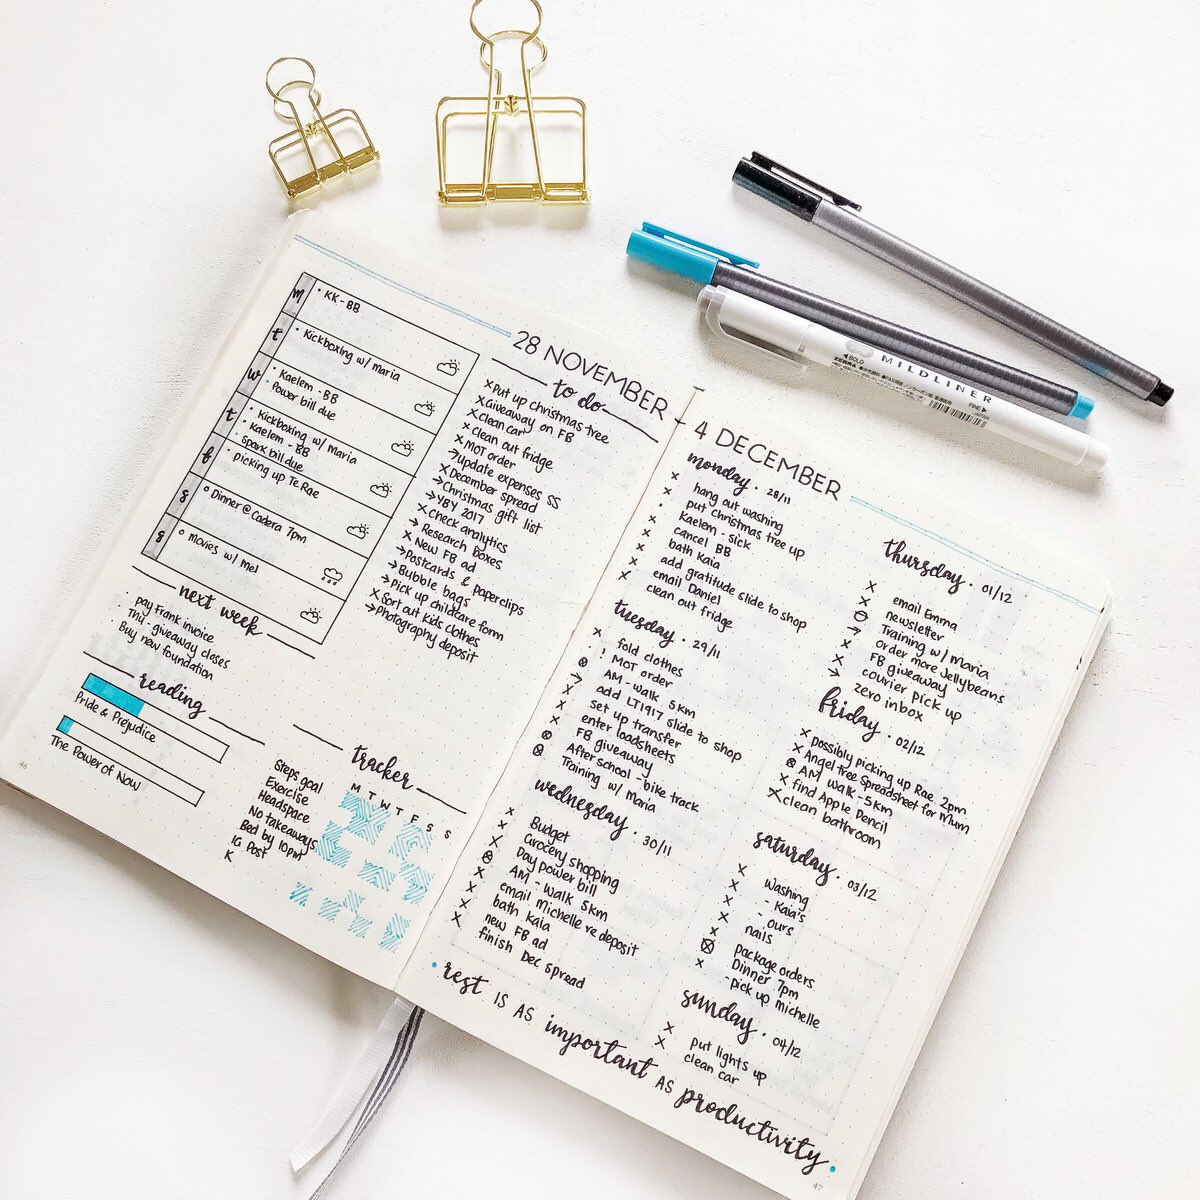 BOLD
MILDLINER
FINE
28 NOVEMBER
m
• KK - BB
t
• Kickboxing w/ Maria
w
• Kaelem - BB
• Power bill due
t
• Kickboxing w/ Maria
• Kaelem - BB
• Spark bill due
f
• picking up Te Rae
s
o Dinner @ Cadera 7pm
s
o movies w/ me!
next week
• pay Frank invoice
• TMJ - giveaway closes
• Buy new foundation
reading
Pride & Prejudice
The Power of Now
46
to do
x Put up christmas tree
x Giveaway on FB
x clean car
x clean out fridge
x MOT order
→ update expenses SS
x December spread
→ Christmas gift list
→ YBY 2017
x Check analytics
→ Research boxes
x New FB ad
→ Postcards & paperclips
→ Bubble bags
→ Pick up childcare form
x Sort out kids clothes
→ Photography deposit
tracker
M T W T F S S
Steps goal
Exercise
Headspace
No takeaways
Bed by 10pm
IG Post
K
4 DECEMBER
monday • 28/11
hang out washing
put christmas tree up
Kaelem - sick
cancel BB
bath Kaia
add gratitude slide to shop
email Daniel
clean out fridge
tuesday • 29/11
fold clothes
! MOT order
AM - walk 5km
add LT1917 slide to shop
set up transfer
enter loadsheets
FB giveaway
After school - bike track
Training w/ Maria
wednesday • 30/11
Budget
Grocery shopping
Pay power bill
AM - walk 5km
email Michelle re deposit
bath Kaia
new FB ad
finish Dec spread
thursday • 01/12
email Emma
newsletter
Training w/ Maria
order more Jellybeans
FB giveaway
courier pick up
zero inbox
friday • 02/12
x possibly picking up Rae 2pm
x Angel tree Spreadsheet for Mum
AM walk - 5km
x find Apple Pencil
x clean bathroom
saturday • 03/12
washing
- Kaia's
- ours
nails
package orders
Dinner 7pm
- pick up Michelle
sunday • 04/12
put lights up
clean car
• rest IS AS important AS productivity •
47